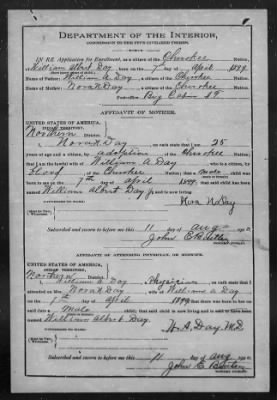 DEPARTMENT OF THE INTERIOR,
COMMISSION TO THE FIVE CIVILIZED TRIBES.
IN RE Application for Enrollment, as a citizen of the Cherokee Nation,
of William Albert Day, born on the 7 day of April 1899
Name of Father: William A Day a citizen of the Cherokee Nation.
Name of Mother: Nora N Day a citizen of the Cherokee Nation.
Big Cabin I T
AFFIDAVIT OF MOTHER.
UNITED STATES OF AMERICA,
INDIAN TERRITORY,
Northern District.
I, Nora N Day, on oath state that I am 25
years of age and a citizen by adoption, of the Cherokee Nation;
that I am the lawful wife of William A Day, who is a citizen, by
blood of the Cherokee Nation; that a male child was
born to me on 7th day of April, 1899, that said child has been
named William Albert Day, and is now living.
Nora N Day
Subscribed and sworn to before me this 11 day of Aug
John C
AFFIDAVIT OF ATTENDING PHYSICIAN, OR MIDWIFE.
UNITED STATES OF AMERICA,
INDIAN TERRITORY,
Northern District.
I, William A Day, a Physician, on oath state that I
attended on Mrs. Nora N Day, wife of William A Day
on the 7th day of April, 1899, that there was born to her on said
date a Male child; that said child is now living and is said to have been
named William Albert Day
W. A. Day M.D.
Subscribed and sworn to before me this 11 day of Aug
John C